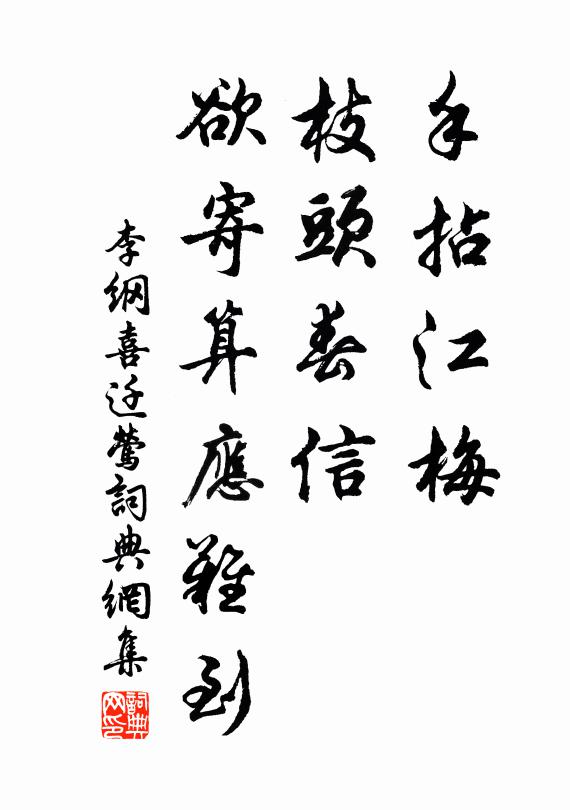 手拈江梅
枝頭春信
欲寄算應難到
李綱喜迁鶯詞典網集
詞典網印